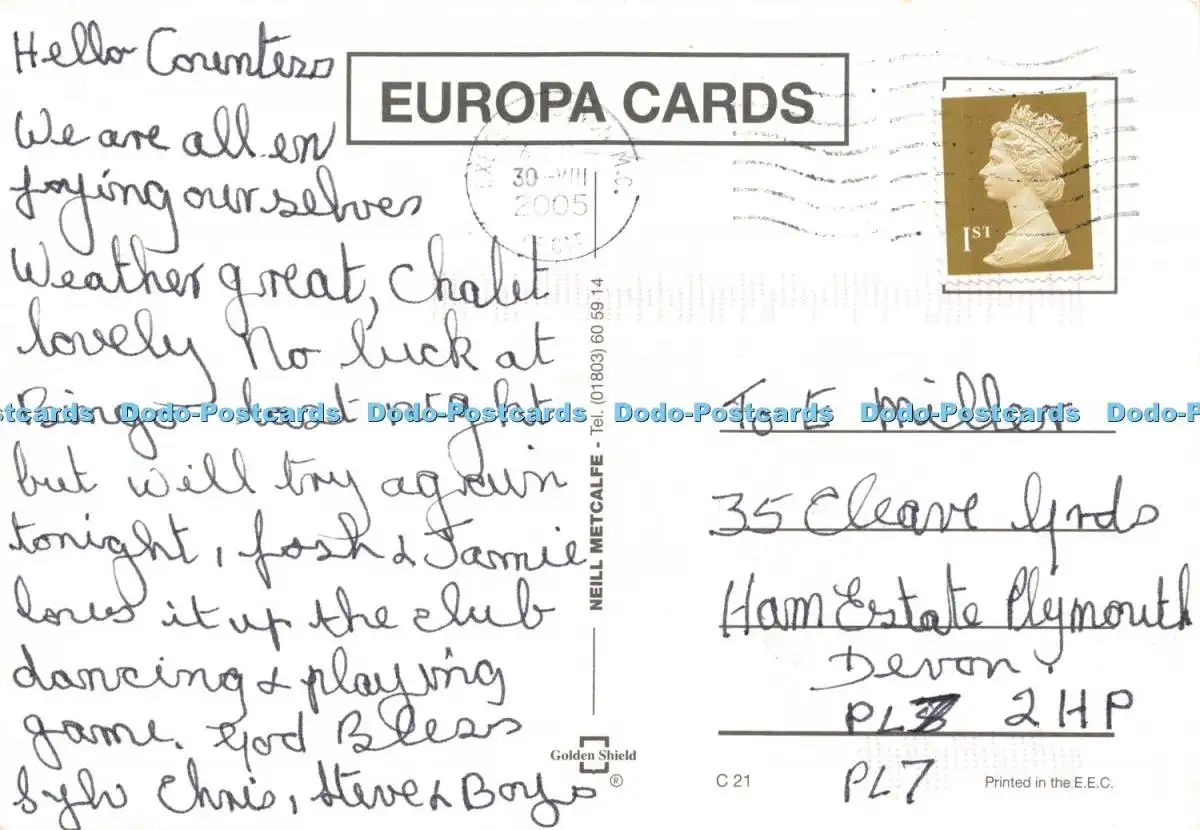 Hello
We are all en
joying ourselves
Weather great, Chalet
lovely No luck at
Bingo last night
but will try again
tonight, Josh & Jamie
loves it up the club
dancing & playing
game. God Bless
Sylv Chris, Steve & Boys
EUROPA CARDS
30 VIII
2005
1ST
NEILL METCALFE - Tel. (01803) 60 59 14
To E Miller
35 Cleave Grds
Ham Estate Plymouth
Devon.
2HP
PL7
Golden Shield
®
C 21
Printed in the E.E.C.
Dodo-Postcards Dodo-Postcards Dodo-Postcards Dodo-Postcards